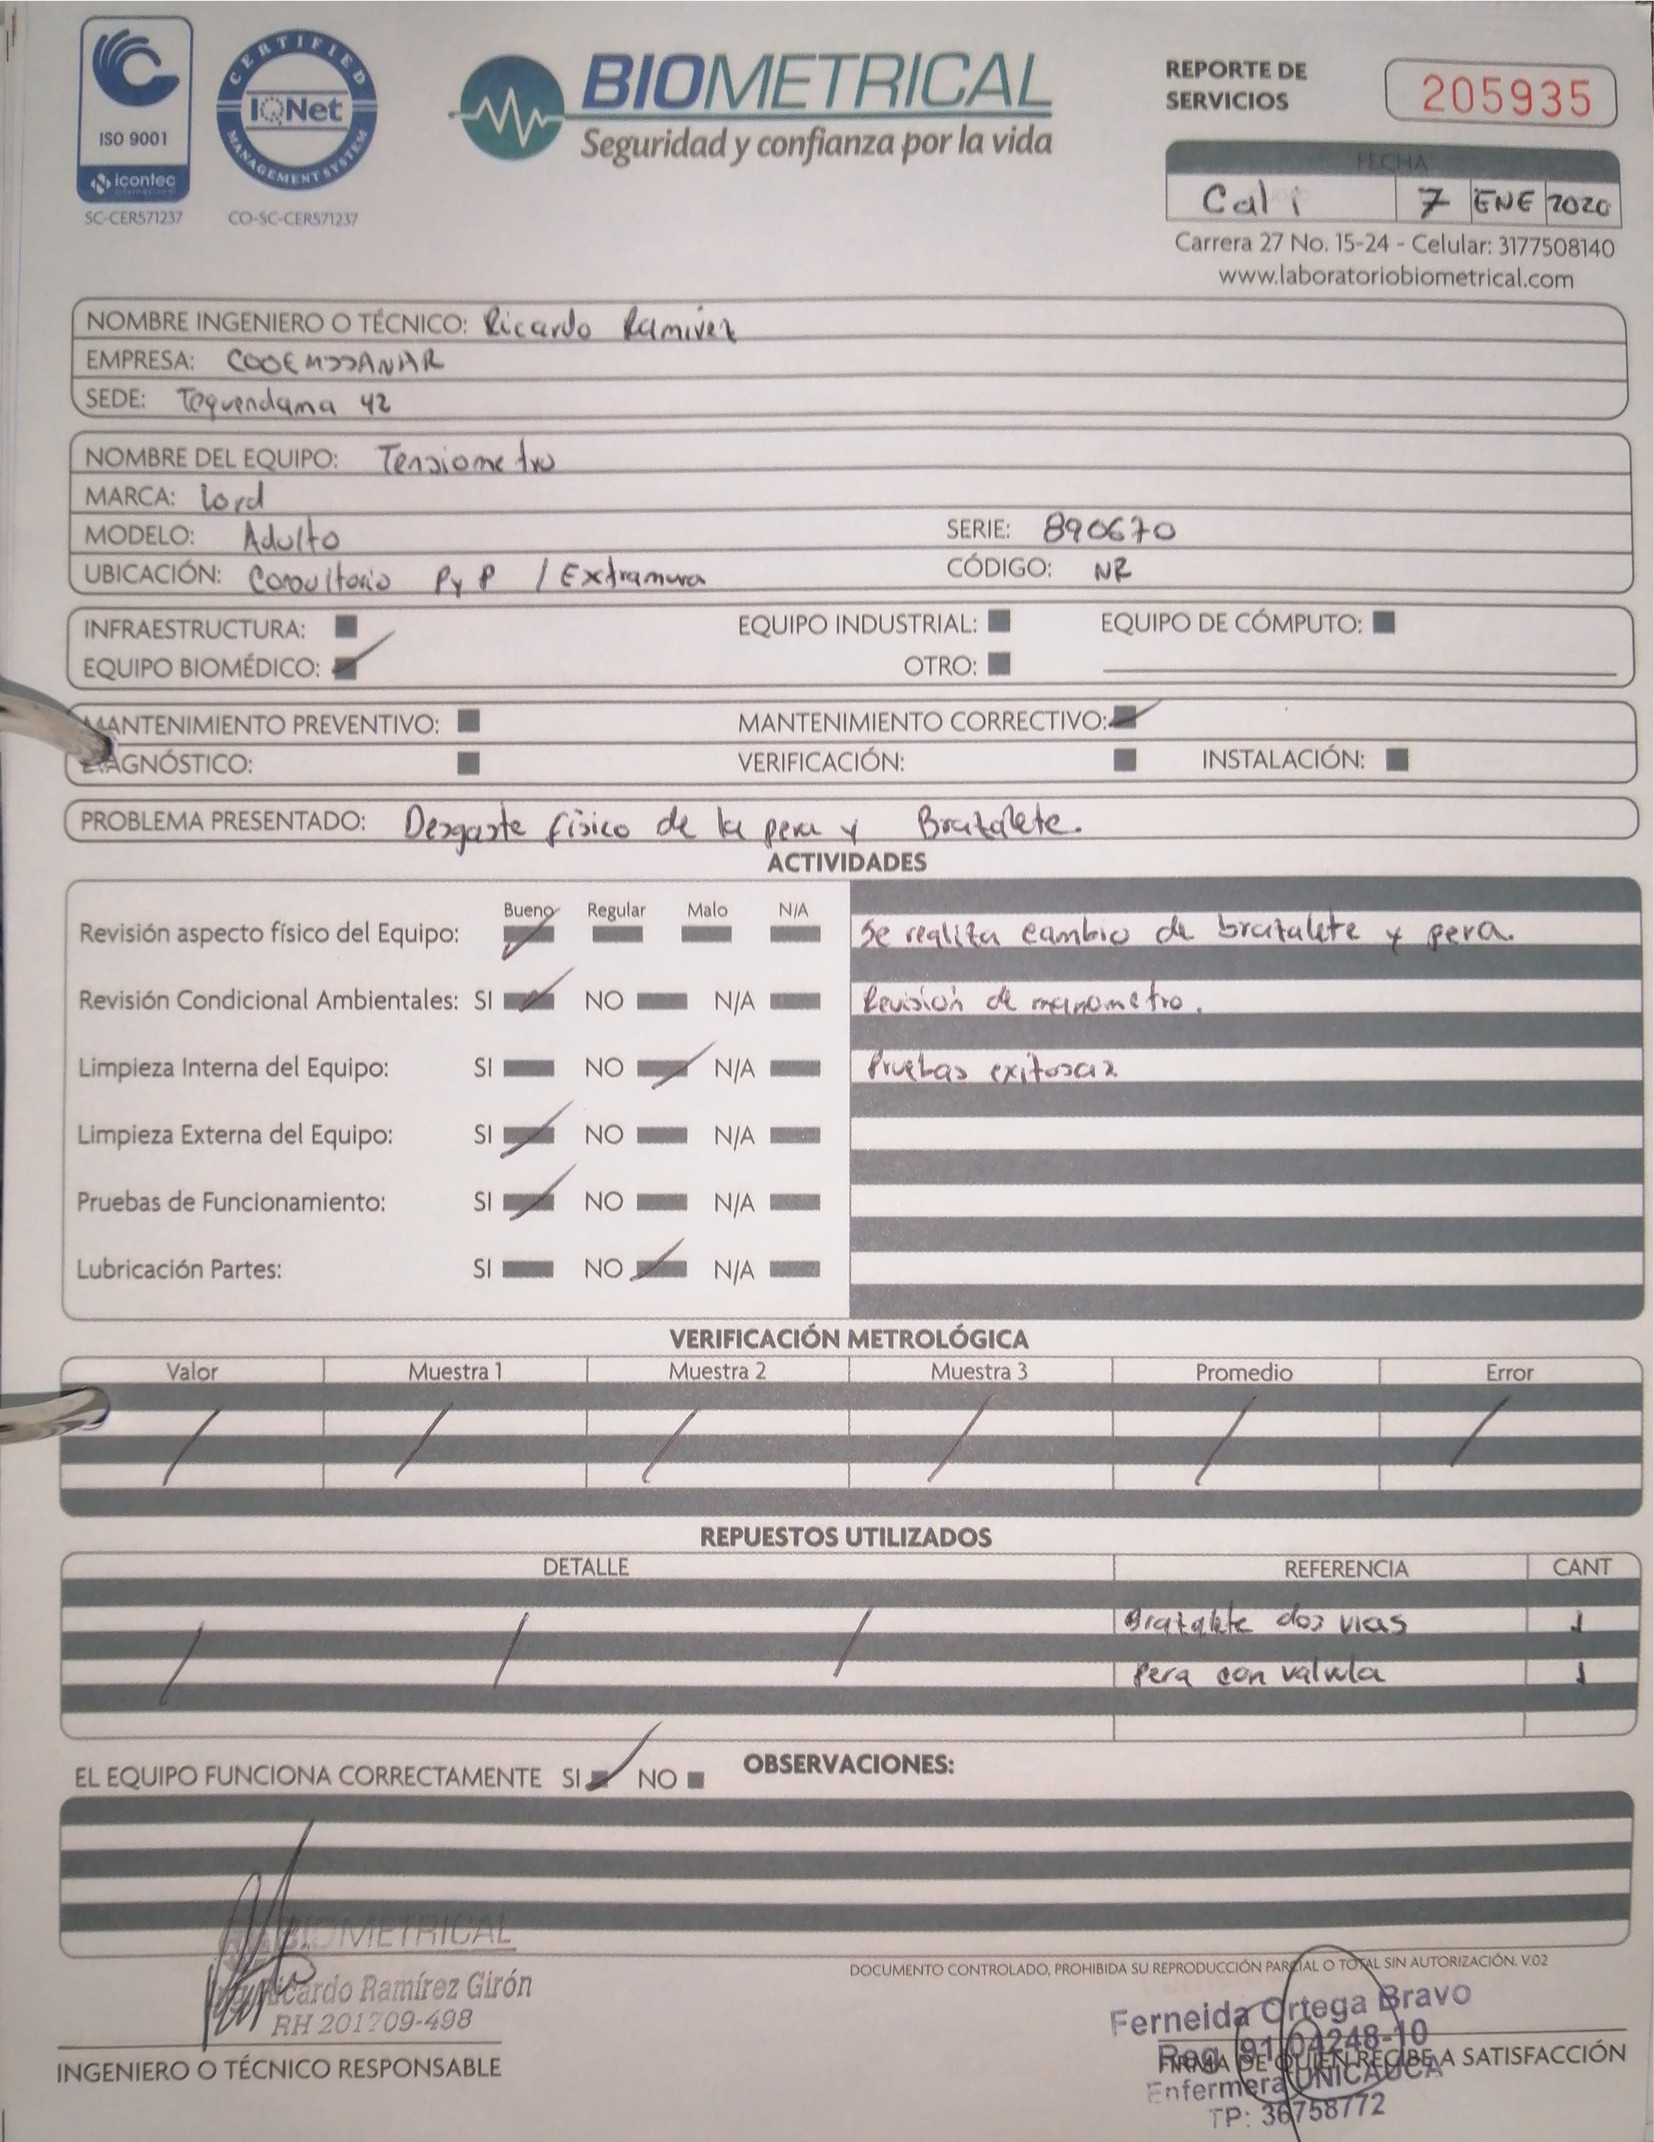 ISO 9001
icontec
SC-CER571237
CERTIFIED
IQNet
MANAGEMENT SYSTEM
CO-SC-CER571237
BIOMETRICAL
Seguridad y confianza por la vida
REPORTE DE
SERVICIOS
205935
FECHA
Cali 7 ENE 2020
Carrera 27 No. 15-24 - Celular: 3177508140
www.laboratoriobiometrical.com
NOMBRE INGENIERO O TÉCNICO: Ricardo Ramirez
EMPRESA: COOEMSSANAR
SEDE: Tequendama 42
NOMBRE DEL EQUIPO: Tensiometro
MARCA: Lord
MODELO: Adulto SERIE: 890670
UBICACIÓN: Consultorio PyP / Extramura CÓDIGO: NR
INFRAESTRUCTURA: EQUIPO INDUSTRIAL: EQUIPO DE CÓMPUTO:
EQUIPO BIOMÉDICO: OTRO:
MANTENIMIENTO PREVENTIVO: MANTENIMIENTO CORRECTIVO:
DIAGNÓSTICO: VERIFICACIÓN: INSTALACIÓN:
PROBLEMA PRESENTADO: Desgaste físico de la pera y Brazalete.
ACTIVIDADES
Bueno Regular Malo N/A
Revisión aspecto físico del Equipo: Se realiza cambio de brazalete y pera.
Revisión Condicional Ambientales: SI NO N/A Revisión de manometro.
Limpieza Interna del Equipo: SI NO N/A Pruebas exitosas
Limpieza Externa del Equipo: SI NO N/A
Pruebas de Funcionamiento: SI NO N/A
Lubricación Partes: SI NO N/A
VERIFICACIÓN METROLÓGICA
Valor Muestra 1 Muestra 2 Muestra 3 Promedio Error
REPUESTOS UTILIZADOS
DETALLE REFERENCIA CANT
Brazalete dos vias 1
Pera con valvula 1
EL EQUIPO FUNCIONA CORRECTAMENTE SI NO OBSERVACIONES:
BIOMETRICAL
Ing. Ricardo Ramírez Girón
RH 201709-498
INGENIERO O TÉCNICO RESPONSABLE
DOCUMENTO CONTROLADO, PROHIBIDA SU REPRODUCCIÓN PARCIAL O TOTAL SIN AUTORIZACIÓN. V.02
Ferneida Ortega Bravo
Reg. 91 04248-10
FIRMA DE QUIEN RECIBE A SATISFACCIÓN
Enfermera UNICAUCA
TP: 36758772